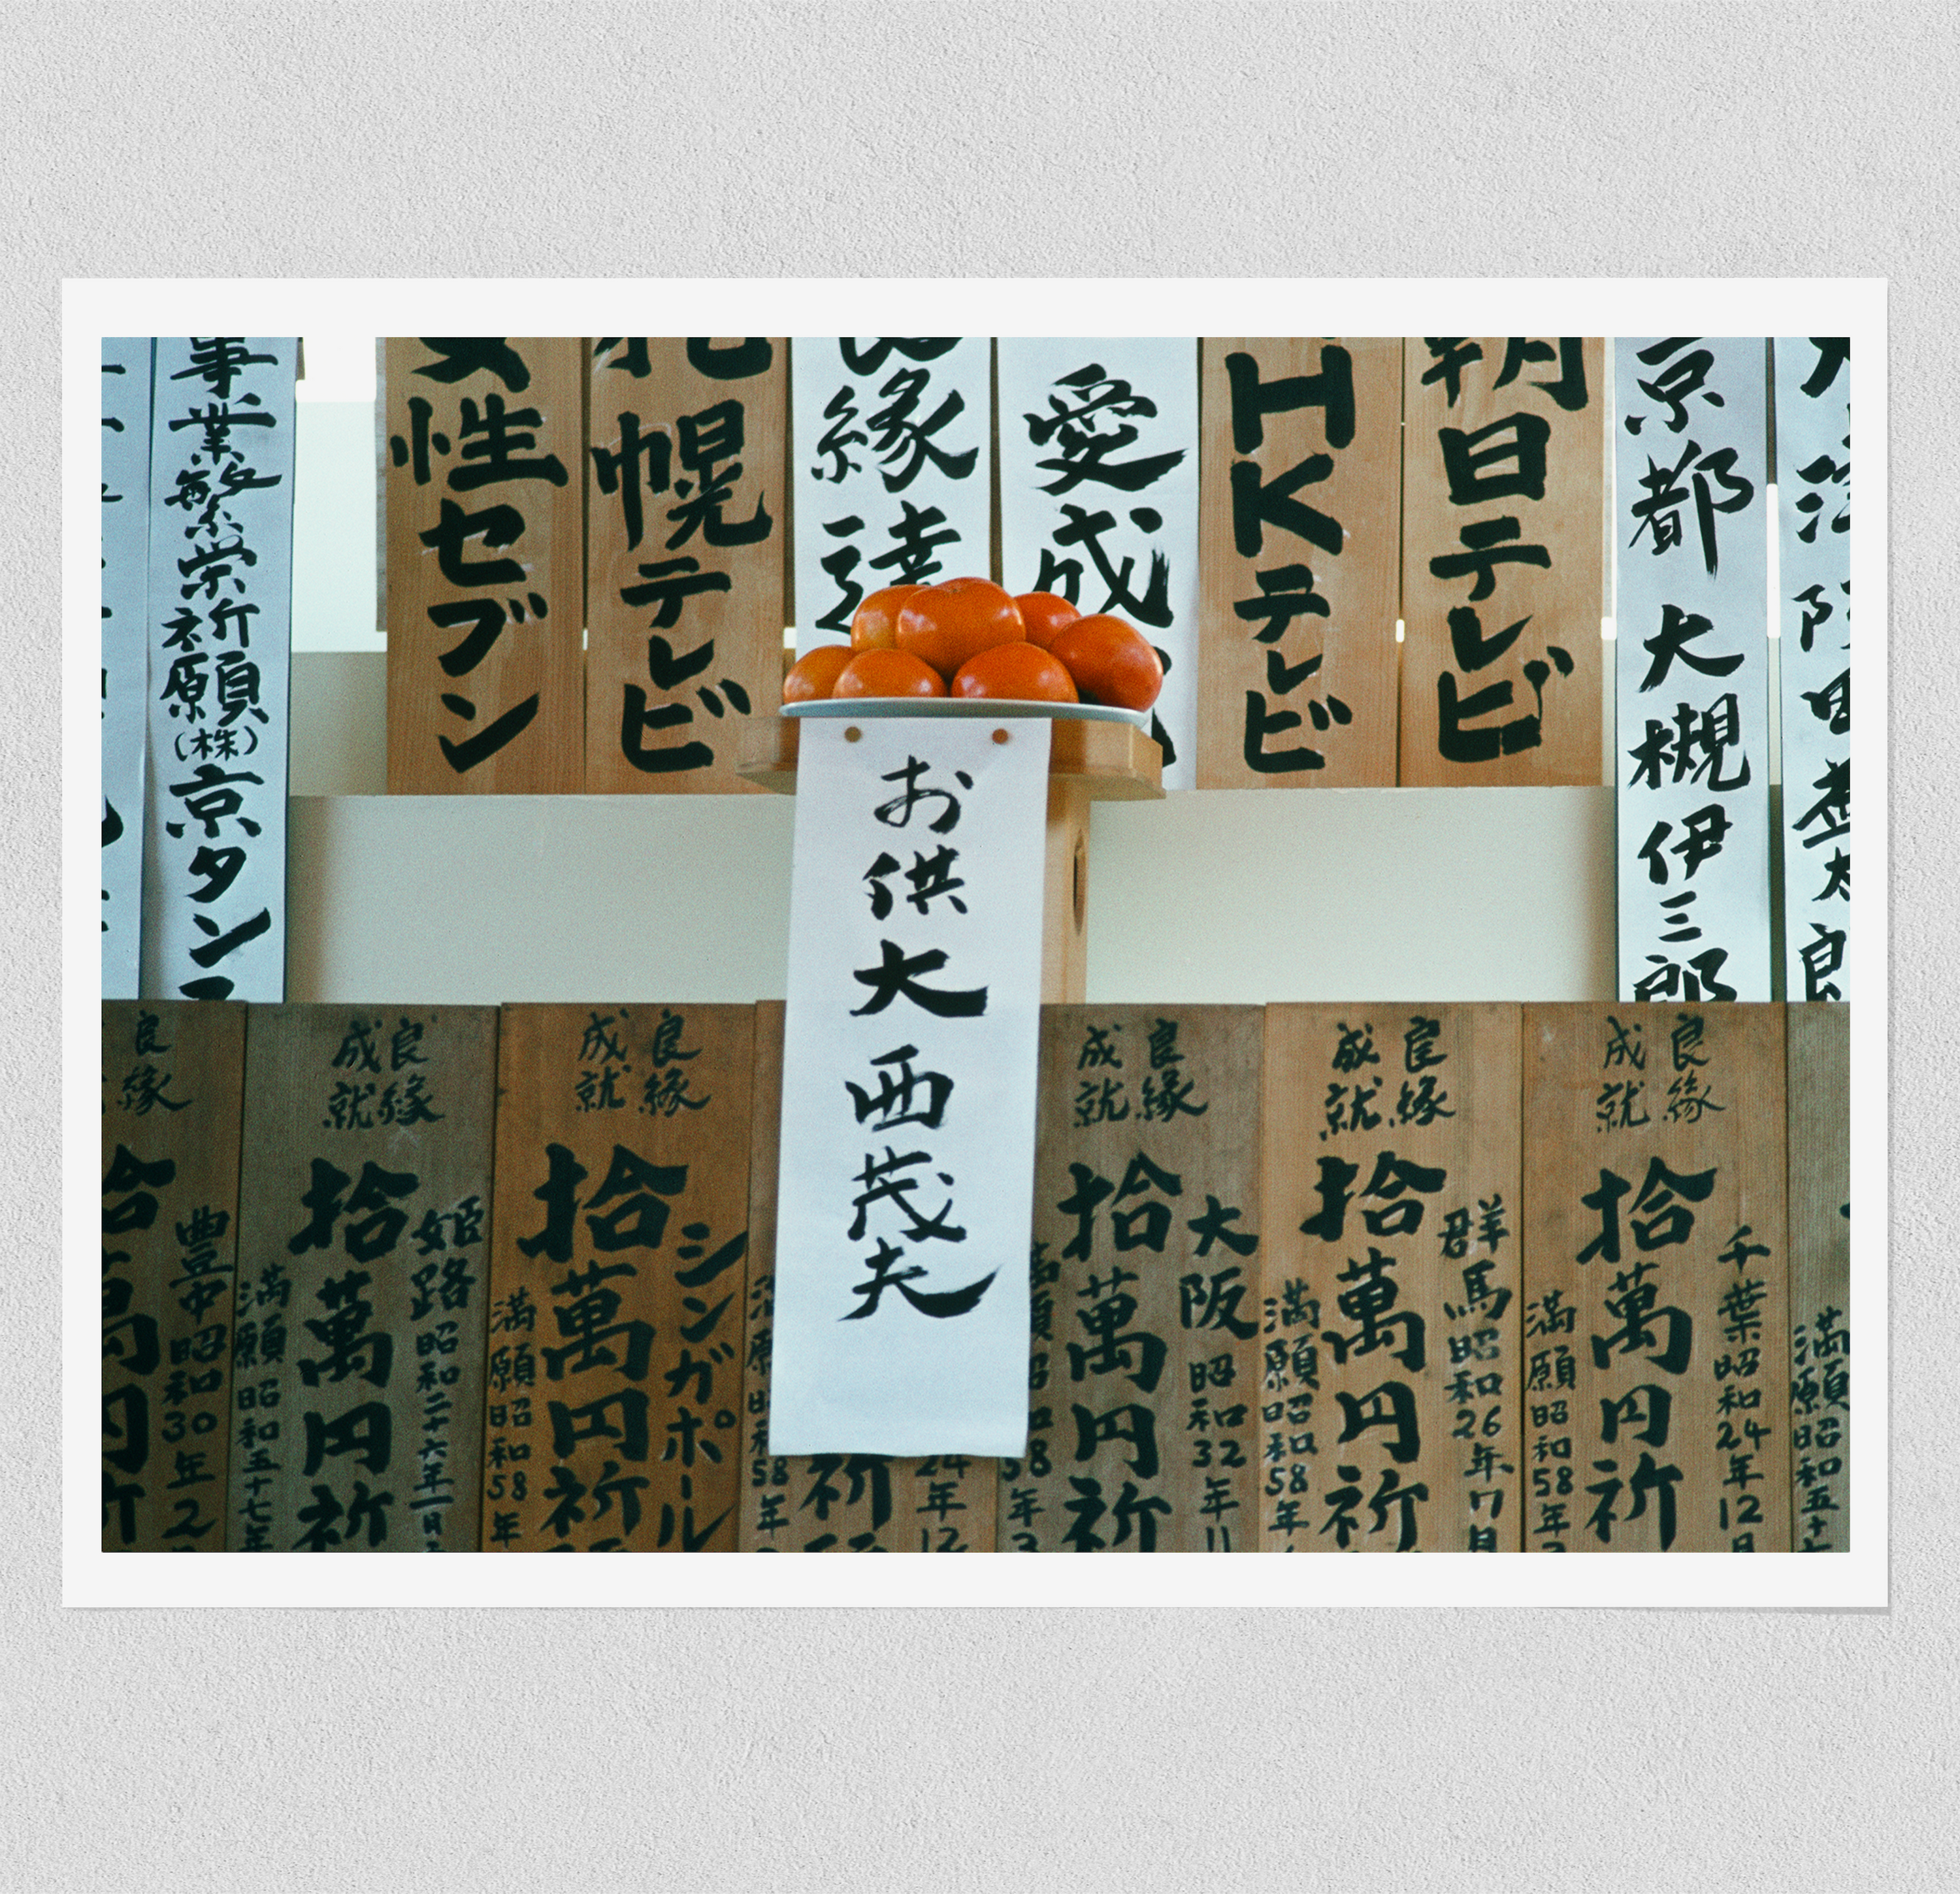 京都 大槻伊三郎
朝日テレビ
HKテレビ
愛成
縁達
札幌テレビ
女性セブン
事業繁栄祈願(株)京タン
お供 大西茂夫
満願昭和五十
良縁
成就
千葉昭和24年12月
拾萬円祈
満願昭和58年
良縁
成就
群馬昭和26年7月
拾萬円祈
満願昭和58年
良縁
成就
大阪昭和32年11
拾萬円祈
58年3
24年12
祈
58年
良縁
成就
シンガポール
拾萬円祈
満願昭和58年
良縁
成就
姫路昭和二十六年一月
拾萬円祈
満願昭和五十七年
良縁
豊中昭和30年2
拾萬円祈